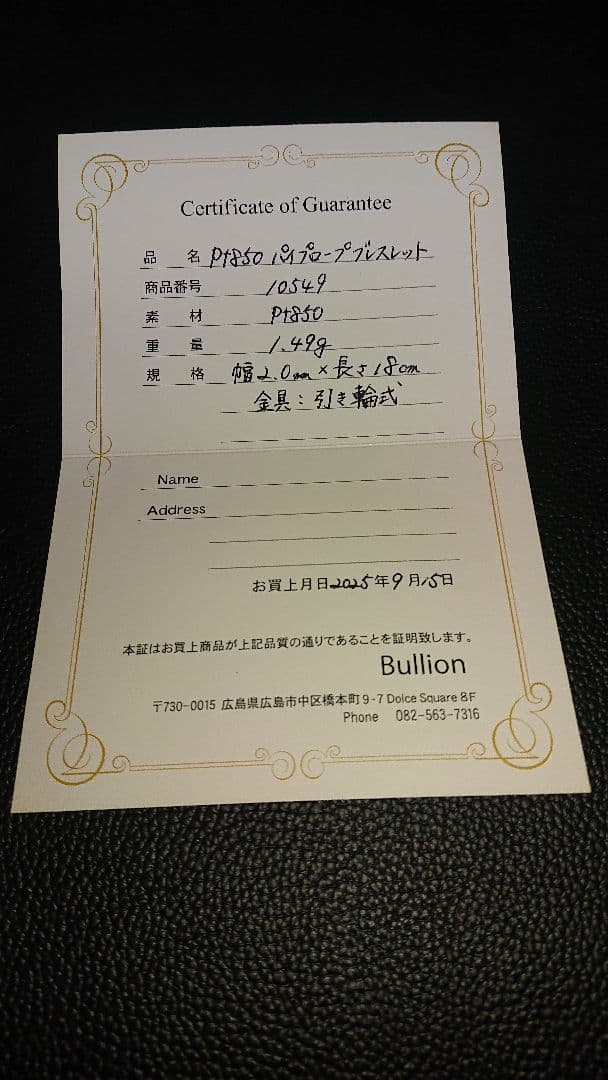 Certificate of Guarantee
品 名 Pt850 パイプロープブレスレット
商品番号 10549
素 材 Pt850
重 量 1.49g
規 格 幅2.0mm×長さ18cm
金具:引き輪式
Name
Address
お買上月日2025年9月15日
本証はお買上商品が上記品質の通りであることを証明致します。
Bullion
〒730-0015 広島県広島市中区橋本町9-7 Dolce Square 8F
Phone 082-563-7316